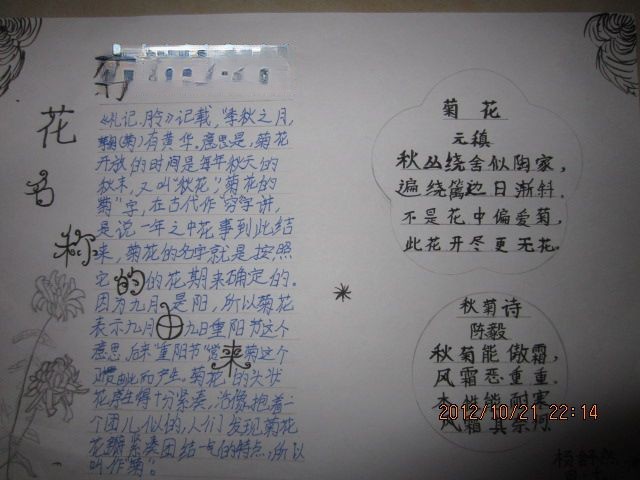 花
名
称
的
由
来
《礼记.月令》记载,"季秋之月,
鞠(菊)有黄华.意思是,菊花
开放的时间是每年秋天的
秋末,又叫"秋花".菊花的
菊"字,在古代作"穷"字讲,
是说一年之中花事到此结
束,菊花的名字就是按照
它的花期来确定的.
因为九月是阳,所以菊花
表示九月九日重阳节这个
意思,后来"重阳节"赏菊这个
习惯由此而产生.菊花的头状
花序生得十分紧凑,活像抱着一
个团儿似的,人们发现菊花
花瓣紧凑团结一气的特点,所以
叫作"菊".
菊花
元稹
秋丛绕舍似陶家,
遍绕篱边日渐斜.
不是花中偏爱菊,
此花开尽更无花.
秋菊诗
陈毅
秋菊能傲霜,
风霜恶重重.
本性能耐寒
风霜其奈何
2012/10/21 22:14